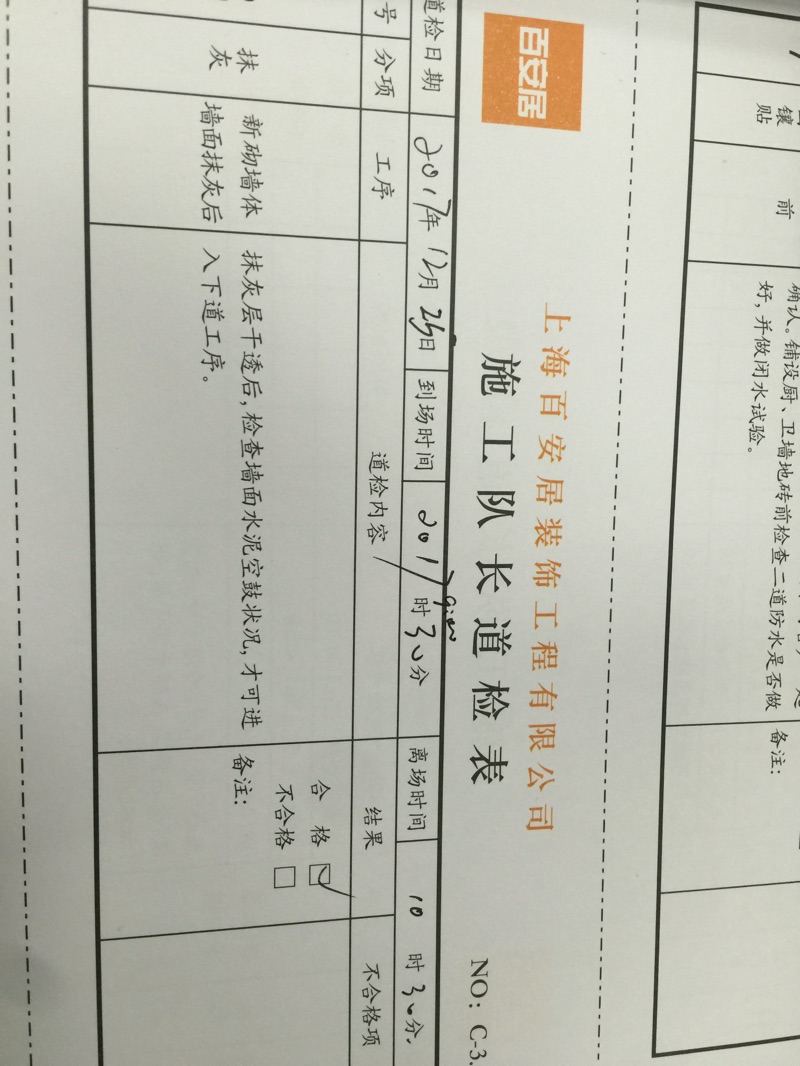 镶贴
前
确认。铺设厨、卫墙地砖前检查二道防水是否做
好，并做闭水试验。
备注：
百安居
上海百安居装饰工程有限公司
施工队长道检表
NO：C-3.
道检日期 2017年12月25日 到场时间 2017 时30分 离场时间 10时30分.
号 分项 工序 道检内容 结果 不合格项
抹灰
新砌墙体
墙面抹灰后
抹灰层干透后，检查墙面水泥空鼓状况，才可进
入下道工序。
合格 ☑
不合格 □
备注：